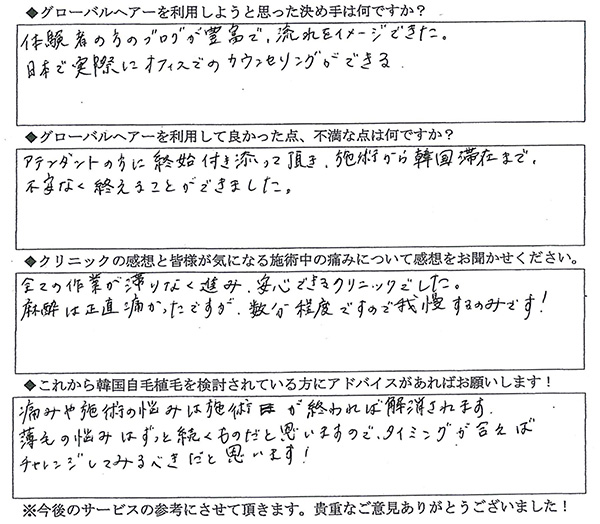 ◆グローバルヘアーを利用しようと思った決め手は何ですか？
体験者の方のブログが豊富で、流れをイメージできた。
日本で実際にオフィスでのカウンセリングができる。
◆グローバルヘアーを利用して良かった点、不満な点は何ですか？
アテンダントの方に終始付き添って頂き、施術から韓国滞在まで、
不安なく終えることができました。
◆クリニックの感想と皆様が気になる施術中の痛みについて感想をお聞かせください。
全ての作業が滞りなく進み、安心できるクリニックでした。
麻酔は正直痛かったですが、数分程度ですので我慢するのみです！
◆これから韓国自毛植毛を検討されている方にアドバイスがあればお願いします！
痛みや施術の悩みは施術が終われば解消されます。
薄毛の悩みはずっと続くものだと思いますので、タイミングが合えば
チャレンジしてみるべきだと思います！
※今後のサービスの参考にさせて頂きます。貴重なご意見ありがとうございました！